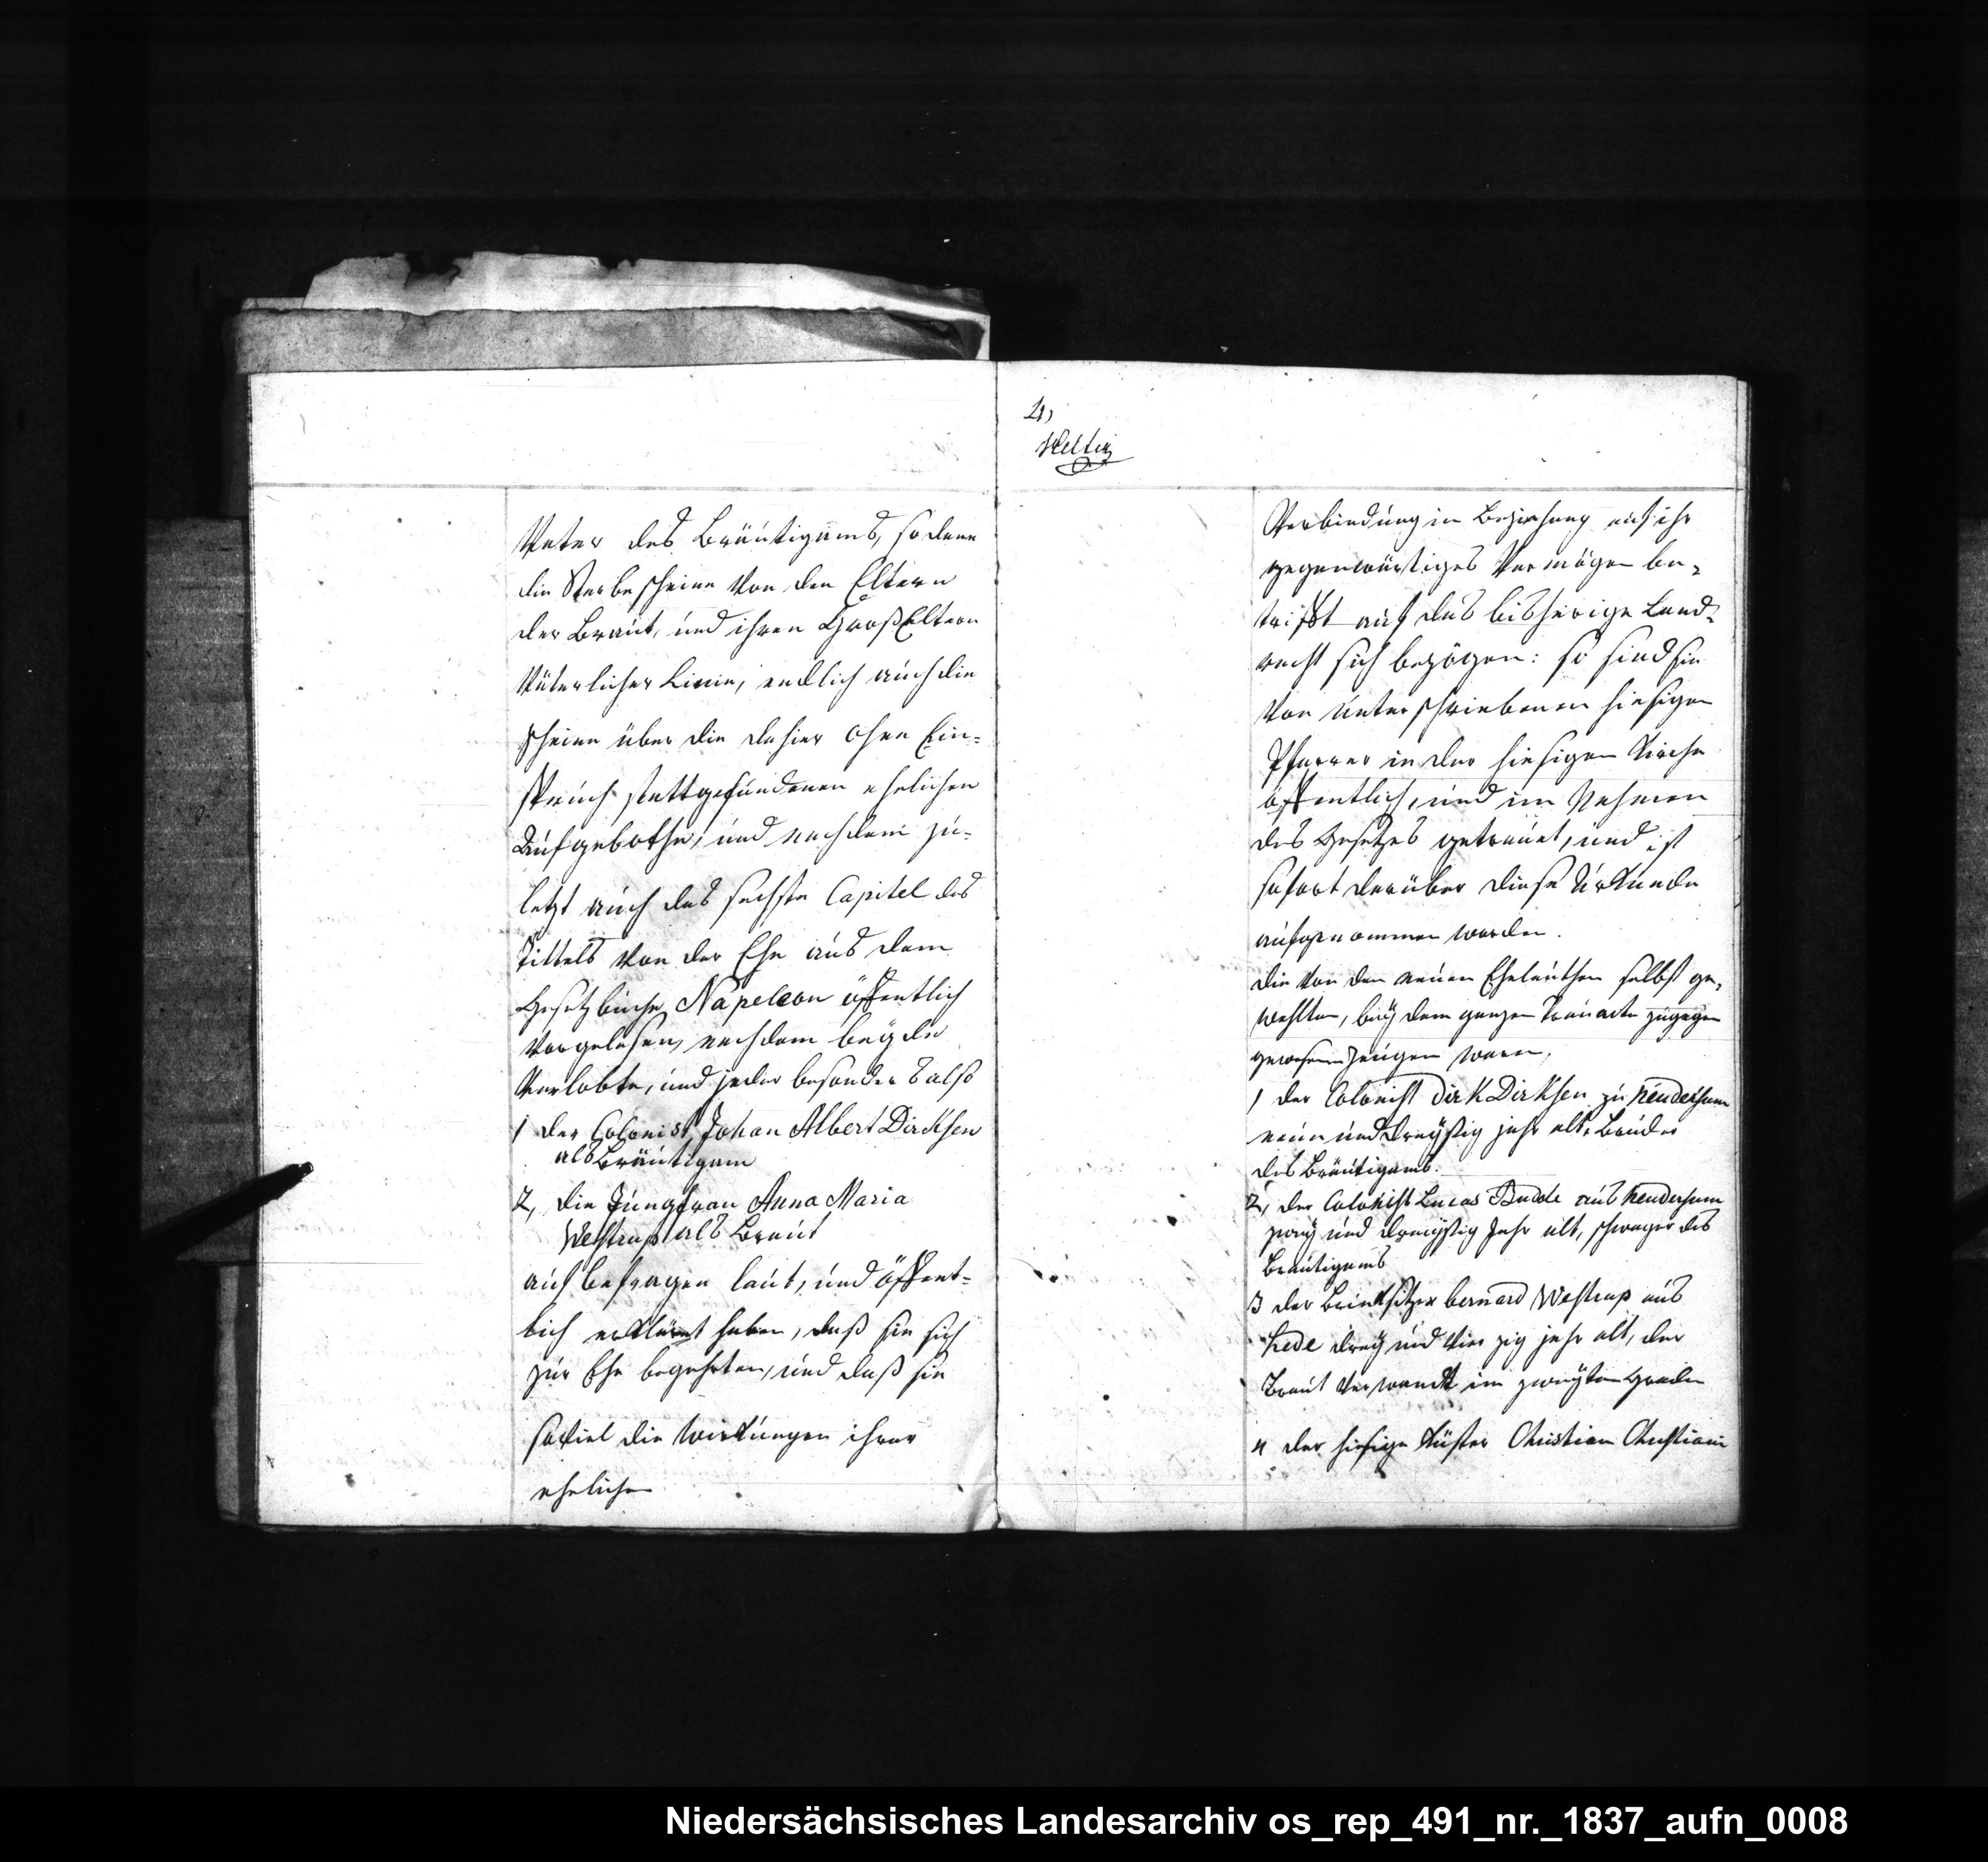 Vater des Bräutigams, so dann
die Sterbescheine von den Eltern
der Braut, und ihren GroßEltern
Väterlicher Linie, endlich auch die
scheine über die dahier ohne Ein-
spruch stattgefundenen ehelichen
Aufgebothe, und nachdem zu-
letzt auch das sechste Capitel des
Tittels von der Ehe aus dem
Gesetzbuche Napoleon öffentlich
vorgelesen, nachdem beyde
Verlobte, und jeder besonders also
1 der Colonist Johan Albert Dircksen
als Bräutigam
2, die Jungfrau Anna Maria
Westrup als Braut
auf befragen laut, und öffent-
lich erklärt haben, daß sie sich
zur Ehe begehrten, und daß sie
soviel die Wirkungen ihrer
ehelichen
4,
Verbindung in Beziehung auf ihr
gegenwärtiges Vermögen be-
trifft auf das bisherige Land-
recht sich bezögen: so sind sie
von unterschriebenen hiesigen
Pfarrer in der hiesigen Kirche
öffentlich, und im Nahmen
des Gesetzes getrauet, und ist
sofort darüber diese Urkunde
aufgenommen worden.
die von den neuen Eheleuthen selbst ge-
wehlten, bey dem ganzen Trauacte zugegen
gewesenen Zeugen waren,
1 der Colonist Dirk Dirksen zu Neudersum
neun und dreyßig jahr alt, Bruder
des Bräutigams.
2, der Colonist Lucas Budde aus Neudersum
zwey und dreyßig Jahr alt, schwager des
Bräutigams
3 der Brinksitzer bernard Westrup aus
hede drey und vierzig jahr alt, der
Braut verwandt im zweyten Grade
4 der hiesige Küster Christian Christiani
Niedersächsisches Landesarchiv os_rep_491_nr._1837_aufn_0008